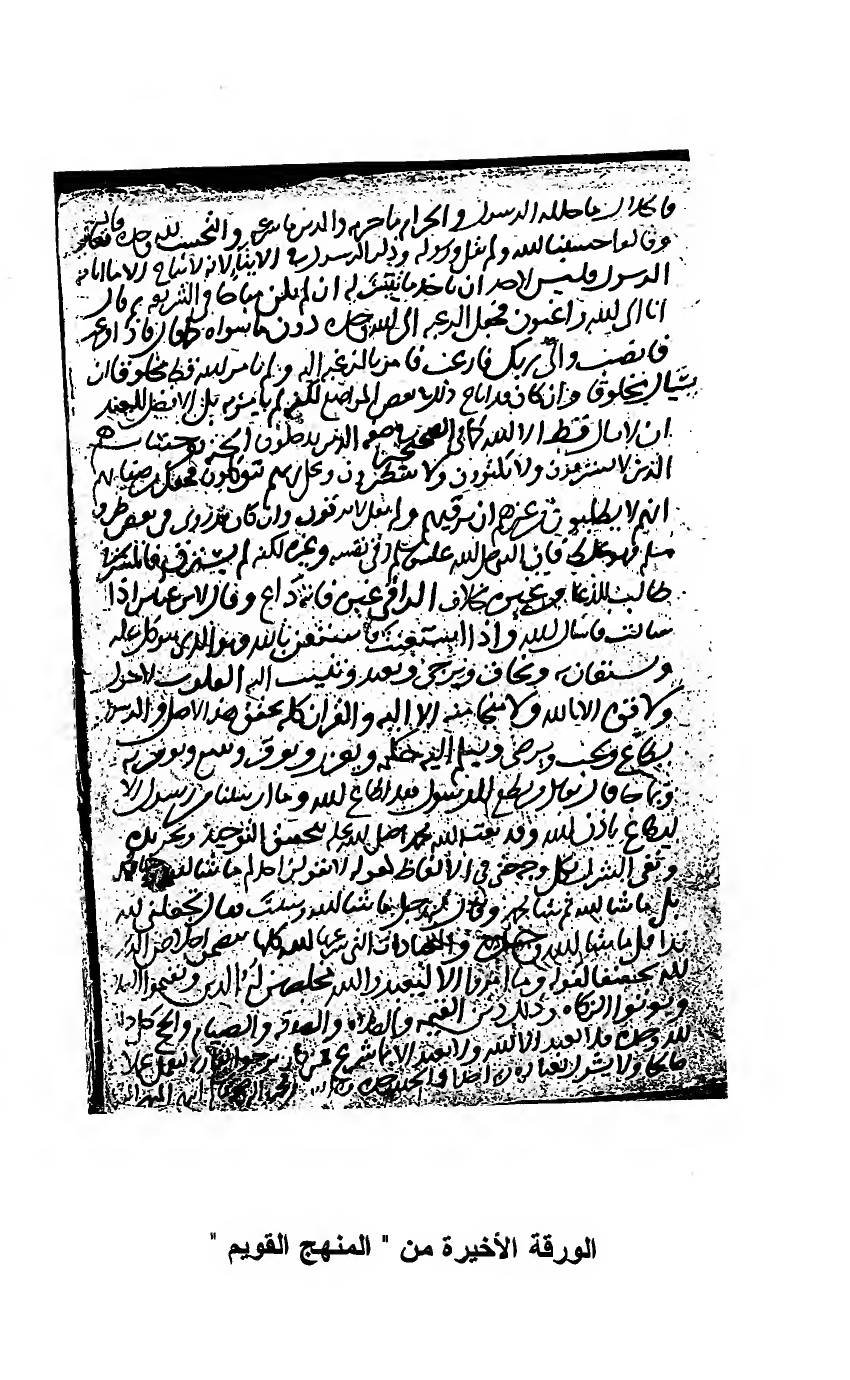 فالحلال ما حلله الرسول والحرام ما حرمه والدين ما شرعه والتحسب لله وحده
وقالوا حسبنا الله ولم يقل ورسوله وذكر الرسول في الايتا لانه لا يباح الا ما اباحه
الرسول فليس لاحد ان ياخذ ما تيسر له ان لم يكن مباحا في الشريعه ثم قال
انا الى الله راغبون فجعل الرغبه الى الله وحده دون ما سواه كما قال فاذا فرغت
فانصب والى ربك فارغب فامر بالرغبه اليه ولم يامر الله قط مخلوقا ان
يسال مخلوقا وان كان قد اباح ذلك في بعض المواضع لكنه لم يامر به بل الافضل للعبد
ان لا يسال قط الا الله كما في الصحيحين في صفه الذين يدخلون الجنه بغير حساب هم
الذين لا يسترقون ولا يكتوون ولا يتطيرون وعلى ربهم يتوكلون فجعل من صفاتهم
انهم لا يطلبون من غيرهم ان يرقيهم ولم يقل لا يرقون وان كان قد روى في بعض طرق
مسلم فهو غلط فان النبي صلى الله عليه وسلم رقى نفسه وغيره لكنه لم يسترق فالمسترقي
طالب للدعا من غيره بخلاف الراقي غيره فانه داع وقال لابن عباس اذا
سالت فاسال الله واذا استعنت فاستعن بالله فهو الذي يتوكل عليه
ويستعان به ويخاف ويرجى ويعبد وتنيب اليه القلوب لا حول
ولا قوه الا بالله ولا منجا منه الا اليه والقران كله يحقق هذا الاصل والرسول
يطاع ويحب ويرضى ويسلم اليه حكمه ويعزر ويوقر ويتبع ويومن به
وبما جا به قال تعالى من يطع الرسول فقد اطاع الله وما ارسلنا من رسول الا
ليطاع باذن الله وقد بعث الله محمدا صلى الله عليه وسلم بتحقيق التوحيد وتجريده
ونفي الشرك بكل وجه حتى في الالفاظ لقوله لا يقولن احدكم ما شا الله وشا محمد
بل ما شا الله ثم شا محمد وقال له رجل ما شا الله وشئت فقال اجعلتني لله
ندا قل ما شا الله وحده والعبادات التي شرعها الله كلها تتضمن اخلاص الدين
لله تحقيقا لقوله وما امروا الا ليعبدوا الله مخلصين له الدين ويقيموا الصلاه
ويوتوا الزكاه وذلك دين القيمه فالصلاه والصدقه والصيام والحج كل ذلك
لله وحده فلا يعبد الا الله ولا يعبد الا بما شرع فمن كان يرجو لقا ربه فليعمل عملا
صالحا ولا يشرك بعباده ربه احدا والحمد لله وحده
الورقة الأخيرة من " المنهج القويم "